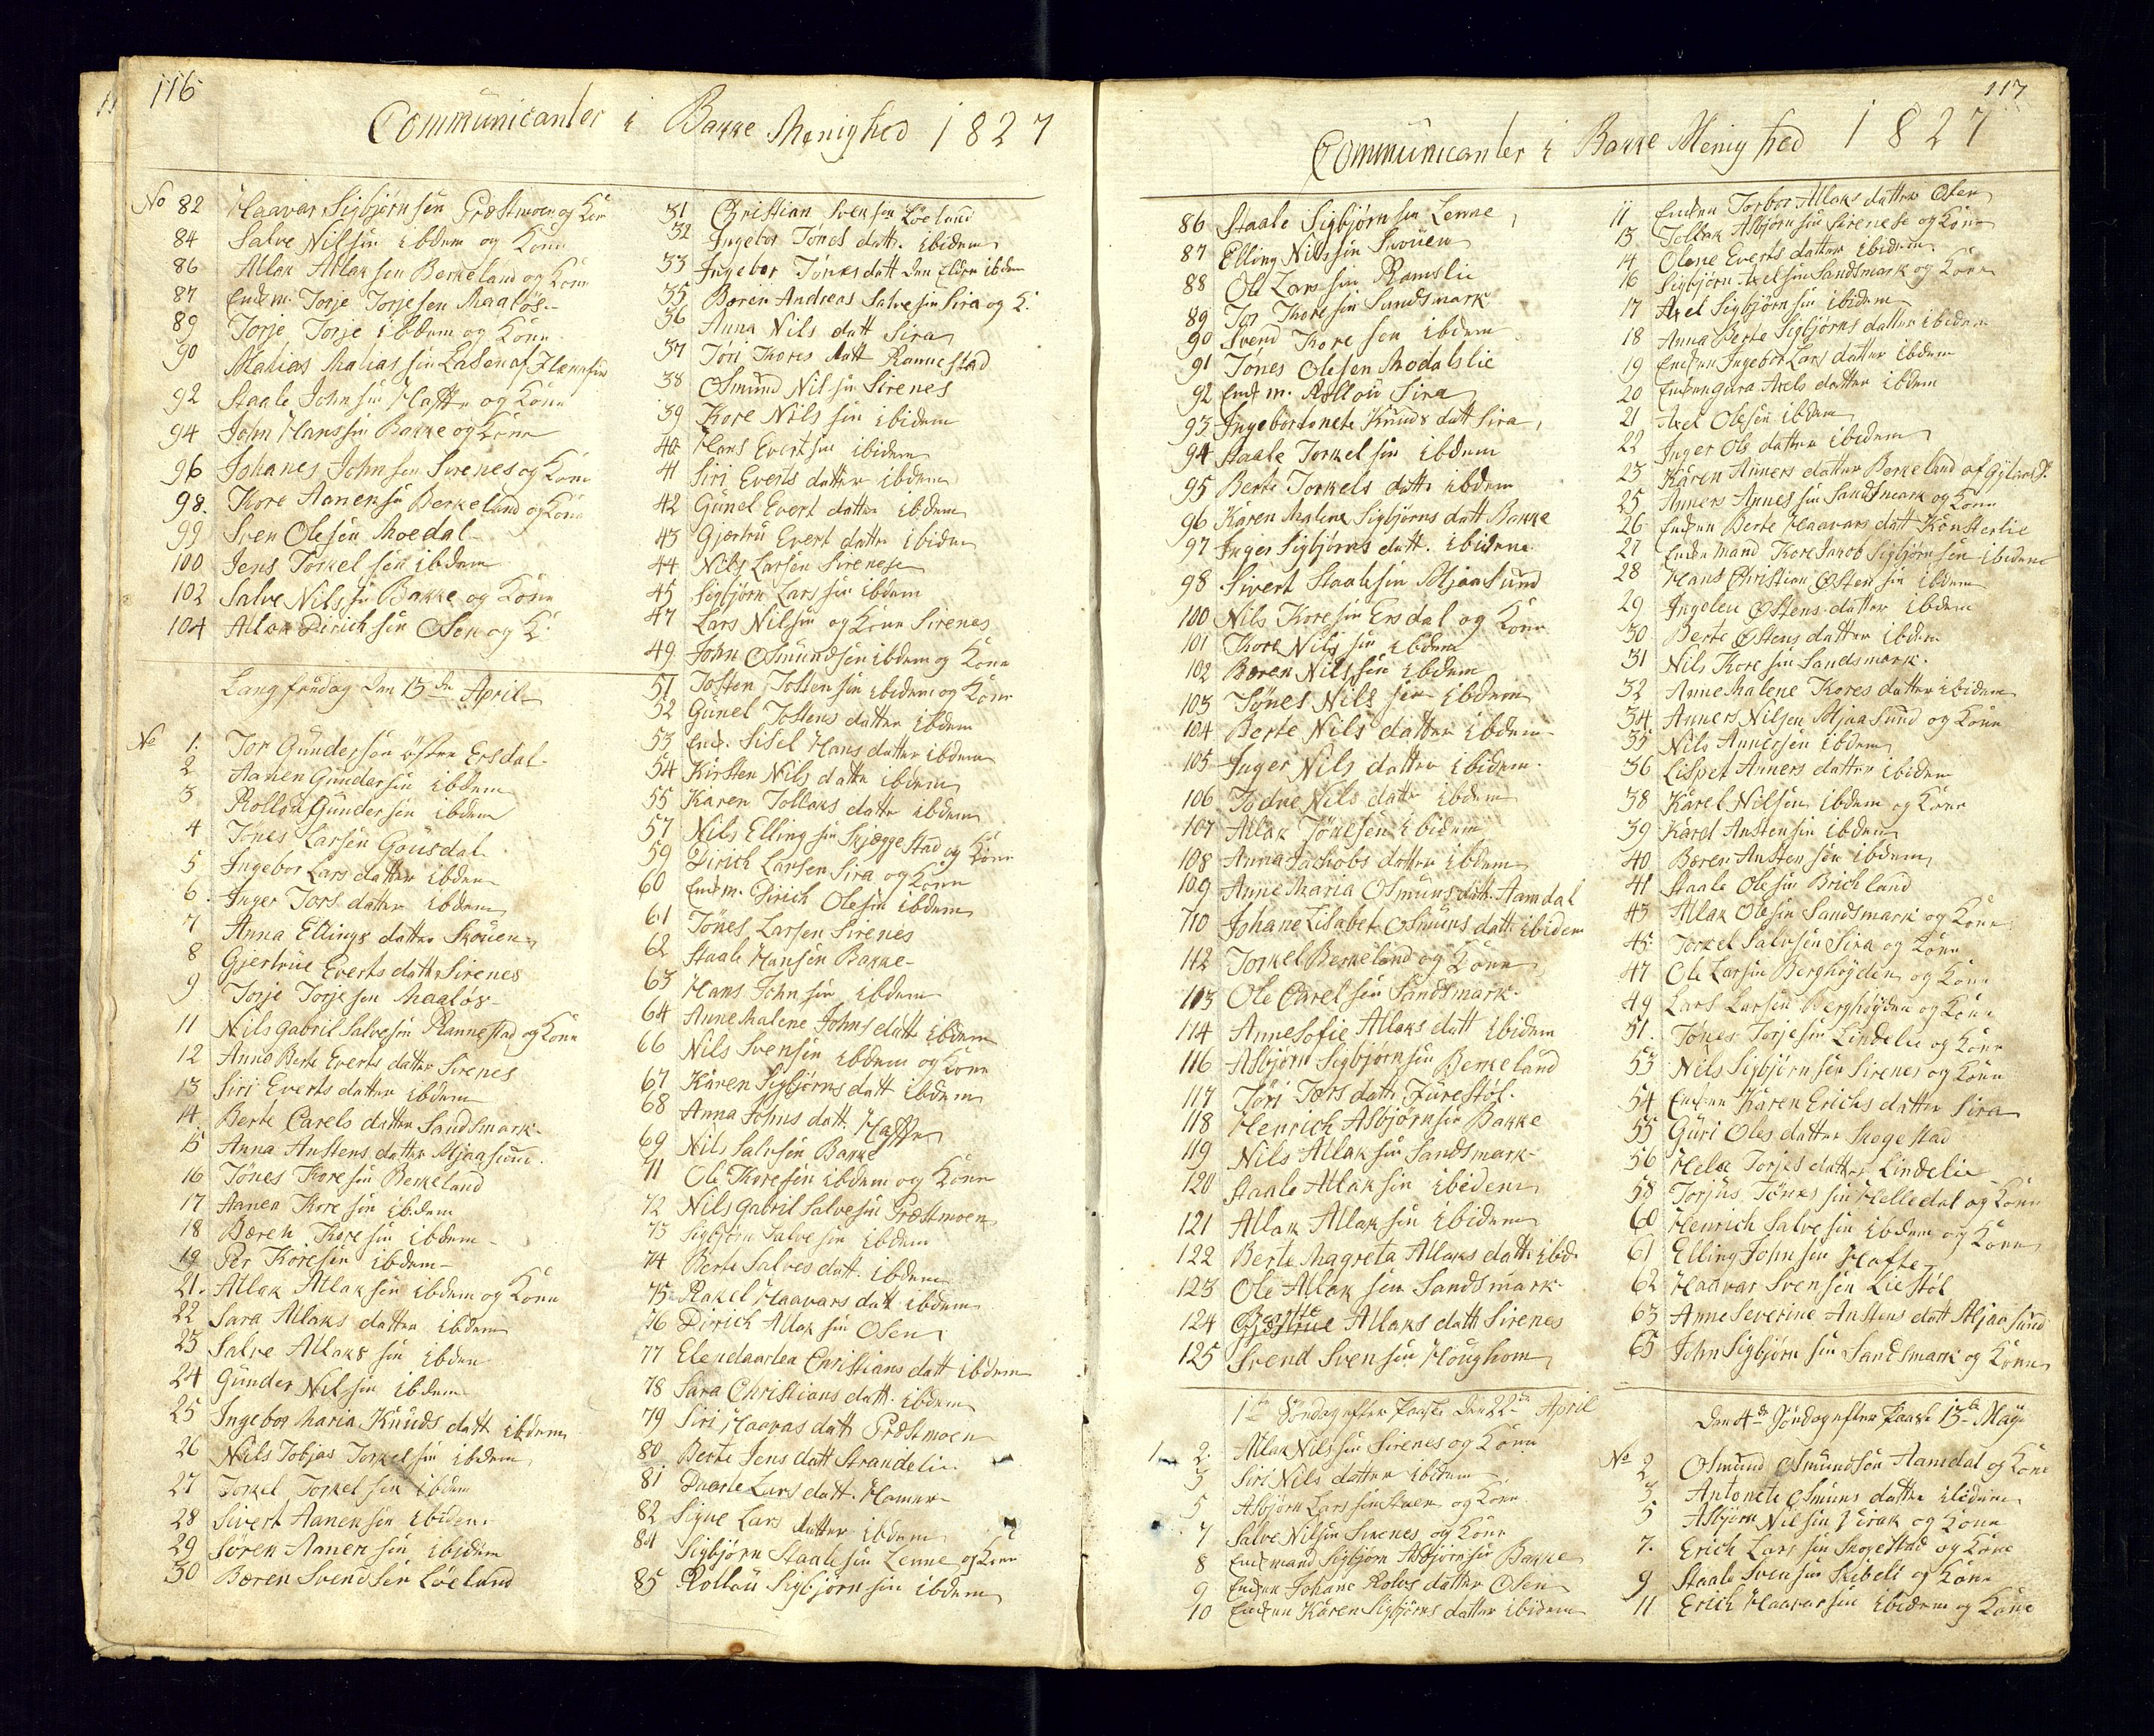 116
Communicanter i Bakke Menighed 1827
No 82 Haavar Sigbjørnsen Præstmoen og Kon
84 Salve Nilsen ibdem og Kone
86 Atlak Atlaksen Berkeland og Kone
87 Enkm. Torje Torjesen Maaløs
89 Torje Torje ibdem og Kone
90 Matias Matiassen
92 Staale Johnsen Hafte og Kone
94 John Hanssen Bakke og Kone
96 Johanes Johnsen Sirenes og Kone
98. Kore Aanensen Berkeland og Kone
99 Sven Olesen Moedal
100 Jens Torkelsen ibdem
102 Salve Nilssen Bakke og Kone
104 Atlak Dirichsen Osen og K:
Langfredag den 13de April
No 1. Tor Gundersen østre Ersdal
2 Aanen Gundersen ibdem
3 Rollou Gundersen ibdem
4 Tønes Larsen Gousdal
5 Ingebor Lars datter ibdem
6. Inger Tors datter ibdem
7 Anna Ellings datter Skouen
8 Gjertrue Everts datt Sirenes
9 Torje Torjesen Maaløs
11 Nils Gabril Salvesen Rannestad og Kone
12 Anna Berte Everts datter Sirenes
13 Siri Everts datter ibdem
14. Berte Carels datter Sandsmark
15 Anna Austens datter Mjaasund.
16 Tønes Koresen Berkeland
17 Aanen Koresen ibdem
18 Bæren Koresen ibdem
19 Per Koresen ibdem
21. Atlak Atlaksen ibdem og Kone
22 Sara Atlaks datter ibdem
23 Salve Atlaks sen ibdem
24 Gunder Nilssen ibdem
25 Ingebor Maria Knuds datt ibdem
26 Nils Tobjas Torkelsen ibdem
27 Torkel Torkelsen ibdem
28 Sivert Aanensen ibidem
29 Søren Aanensen ibidem
30 Bæren Svendsen Løeland
31 Christian Svensen Løeland
32 Ingebor Tønes datt. ibidem
33 Ingebor Tønes datt den Eldre ibdem
35 Bæren Andreas Salvesen Sira og K:
36 Anna Nils datt Sira
37 Tøri Thores datt Rannestad
38 Osmund Nilsen Sirenes
39 Kore Nilssen ibidem
40 Hans Evertsen ibidem
41 Siri Everts datter ibdem
42 Gunel Evert datter ibdem
43 Gjertru Evert datter ibidem
44 Nils Larsen Sirenese
45 Sigbjørn Larssen ibdem
47 Lars Nilssen og Kone Sirenes
49 John Osmundsen ibdem og Kone
51 Tosten Tostensen ibidem og Kone
52 Gunel Tostens datter ibdem
53 Enk. Sisel Hans datter ibdem
54 Kirsten Nils datte ibdem
55 Karen Tollaks datte ibdem
57 Nils Ellingsen Skjæggestad og Kone
59 Dirich Larsen Sira og Kone
60 Enkm. Dirich Olesen ibdem
61 Tønes Larsen Sirenes
62 Staale Hansen Bakke
63 Hans Johnsen ibdem
64 Anne Malene Johns datt ibdem
66 Nils Svensen ibdem og Kone
67 Karen Sigbjørns datt ibdem
68 Anna Johns datt Hafte
69 Nils Salvesen Bakke
71 Ole Thoresen ibdem og Kone
72 Nils Gabril Salvesen Præstmoen
73 Sigbjørn Salvesen ibdem
74 Berte Salves datt. ibdem
75 Rakel Haavars datt ibdem
76 Dirich Atlaksen Osen
77 Christians datt ibdem
78 Sara Christians datt. ibdem
79 Siri Haavas datt Præstmoen
80 Berte Jens datt Strandelie
81 Daarte Lars datt. Hamer
82 Signe Lars datter ibdem
84 Sigbjørn Staalesen Lenne og Kone
85 Rollou Sigbjørnsen ibdem
117
Communicanter i Bakke Menighed 1827
86 Staale Sigbjørnsen Lenne
87 Elling Nilssen Skouen
88 Ole Larssen Ramslie
89 Tor Thoresen Sandsmark
90 Svend Koresen ibdem
91 Tønes Olesen Modalslie
92 Enkm. Rollou Sira
93 Ingebor Knuds datt Sira
94 Staale Torkelsen ibdem
95 Berte Torkels datt ibdem
96 Karen Malene Sigbjørns datt Bakke
97 Inger Sigbjørns datt. ibidem
98 Sivert Staalesen Mjaasund
100 Nils Koresen Ersdal og Kone
101 Kore Nilssen ibdem
102 Bæren Nilssen ibdem
103 Tønes Nilssen ibdem
104 Berte Nils datter ibdem
105 Inger Nils datter ibidem
106 Todne Nils datte ibdem
107 Atlak Tønesen ibidem
108 Anna Jachobs datter ibdem
109 Anne Maria Osmuns datt. Aamdal
110 Johane Lisabet Osmuns datt. ibidem
112 Torkel Berkeland og Kone
113 Ole Carelsen Sandsmark
114 Anne Sofie Atlaks datt ibidem
116 Asbjørn Sigbjørnsen Berkeland
117 Tøri Tors datt Furestøl.
118 Henrich Asbjørnsen Bakke
119 Nils Atlaksen Sandsmark
120 Staale Atlaksen ibidem
121 Atlak Atlaksen ibidem
122 Berte Magreta Atlaks datt ibd
123 Ole Atlaksen Sandsmark
124 Atlaks datt Sirenes
125 Svend Svensen Houghom
1te Søndag efter Paaske den 22de April
1 2. Atlak Nilssen Sirenes og Kone
3 Siri Nils datter ibidem
5 Asbjørn Larssen og Kone
7 Salve Nilsen Sirenes og Kone
8 Enkemand Sigbjørn Asbjørnsen Bakke
9 Enken Johane Rolvs datter Osen
10 Enken Karen Sigbjørns datter ibidem
11 Enken Torbor Atlaks datter Osen
13 Tollak Asbjørnsen Sirenese og Kone
14 Olene Everts datter ibidem
16 Sigbjørn Axelsen Sandsmark og Kone
17 Axel Sigbjørnsen ibidem
18 Anna Berte Sigbjørns datter ibidem
19 Enken Ingebor Lars datter ibdem
20 Enken Axels datter ibdem
21 Axel Olesen ibdem
22 Inger Ols datter ibidem
23 Karen Anners datter Berkeland af
25 Anners Annessen Sandsmark og Kone
26 Enken Berte Haavars datt Konsterlie
27 Enkemand Kore Jacob Sigbjørnsen ibidem
28 Hans Christian Østensen ibdem
29 Ingeleu Østens datter ibdem
30 Berte Østens datter ibdem
31 Nils Koresen Sandsmark.
32 Anne Malene Kores datter ibidem
34 Anners Nilsen Mjaasund og Kone
35 Nils Annersen ibdem
36 Lispet Anners datter ibidem
38 Karel Nilsen ibdem og Kone
39 Karel Austensen ibdem
40 Bæren Austensen ibdem
41 Staale Olesen Brichland
43 Atlak Olesen Sandsmark og Kone
45 Torkel Salvesen Sira og Kone
47 Ole Larsen Berghøyden og Kone
49 Lars Larsen Berghøyden og Kone
51. Tønes Torjesen Lindelie og Kone
53 Nils Sigbjørnsen Sirenes og Kone
54 Enken Karen Erichs datter Sira
55 Guri Oles datter Skogestad
56 Torjes datter Lindelie
58 Torjus Tønessen Helledal og Kone
60 Henrich Salvesen ibdem og Kone
61 Elling Johnsen Hafte
62 Haavar Svensen Liestøl
63 Anne Severine Austens datt Mjaasund
65 John Sigbjørnsen Sandsmark og Kone
Den 4de Søndag efter Paaske 13de May
No 2 Osmund Osmundsen Aamdal og Kone
3 Antonete Osmuns datte ibidem
5 Asbjørn Nilsen Virak og Kone
7. Erich Larssen Skogestad og Kone
9 Staale Svensen Skibeli og Kone
11 Erich Haavarsen ibidem og Kone